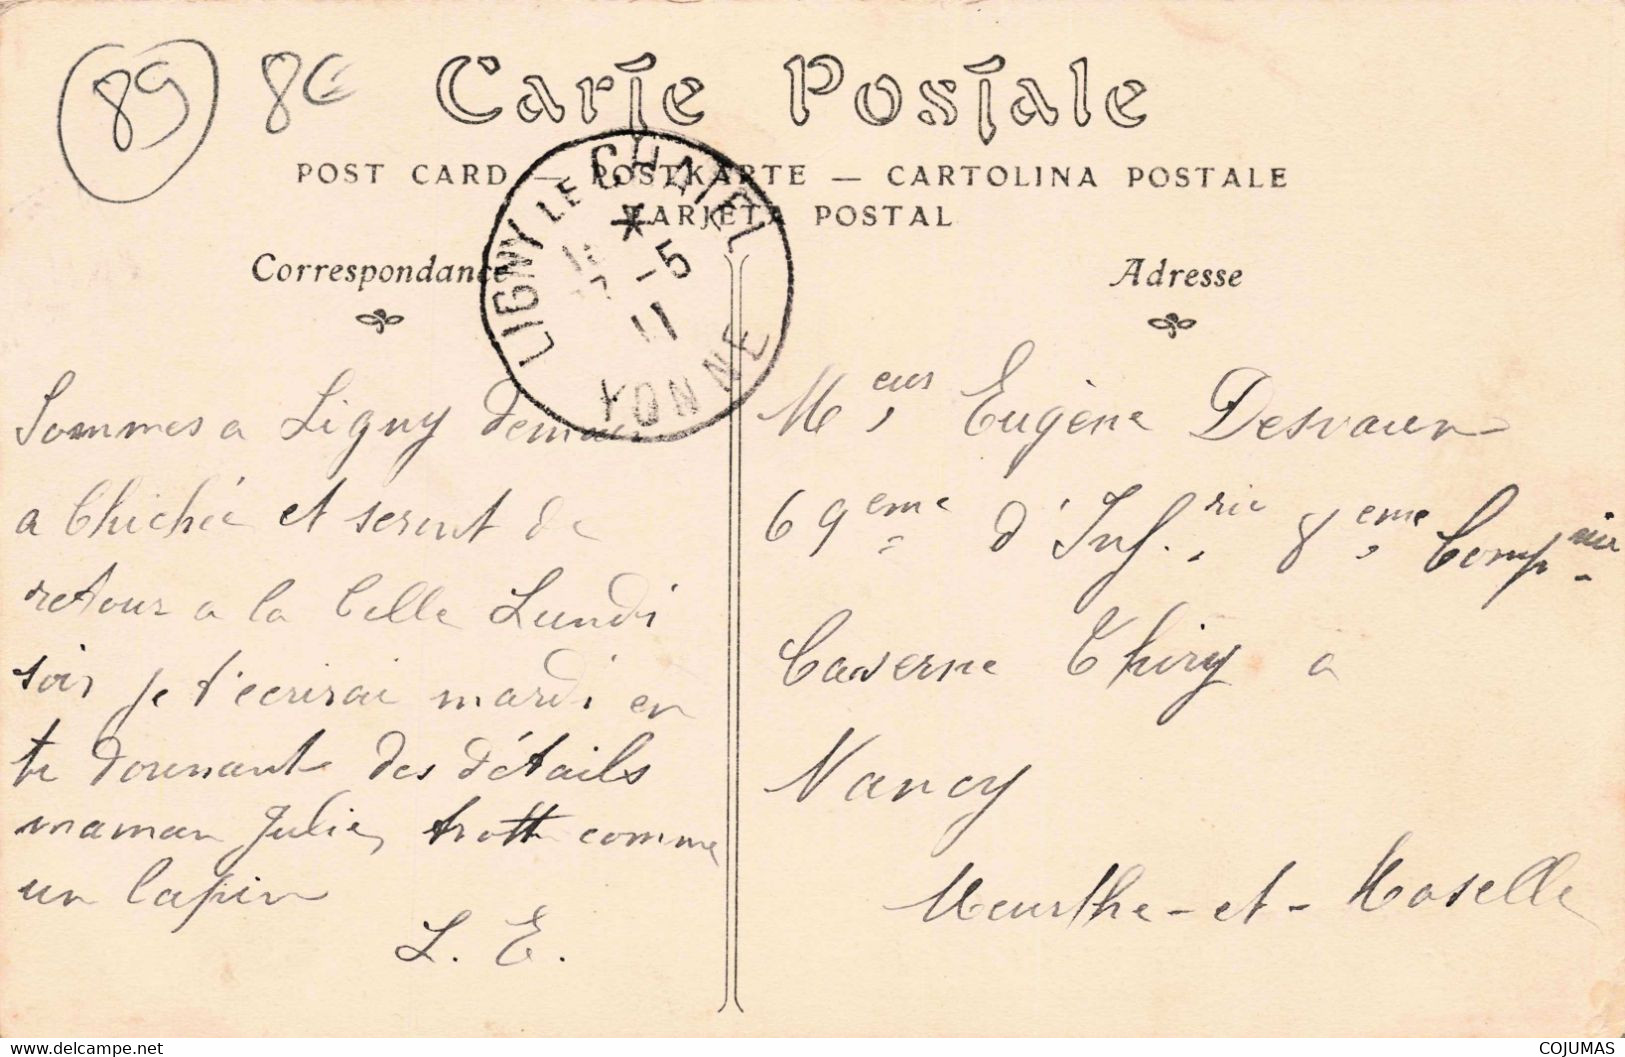 89 8€
Carte Postale
POST CARD — POSTKARTE — CARTOLINA POSTALE
TARJETA POSTAL
LIGNY LE CHATEL
-5
11
YONNE
Correspondance
Sommes a Ligny demain
a Chichée et seront de
retour a la Celle Lundi
soir je t'ecrirai mardi en
te donnant des détails
maman Julie, trotte comme
un lapin
L. E.
Adresse
Meur Eugène Desvaux
69eme d'Inf.rie 8eme Compnie
Caserne Thiry a
Nancy
Meurthe-et-Moselle
Delcampe.net
COJUMAS